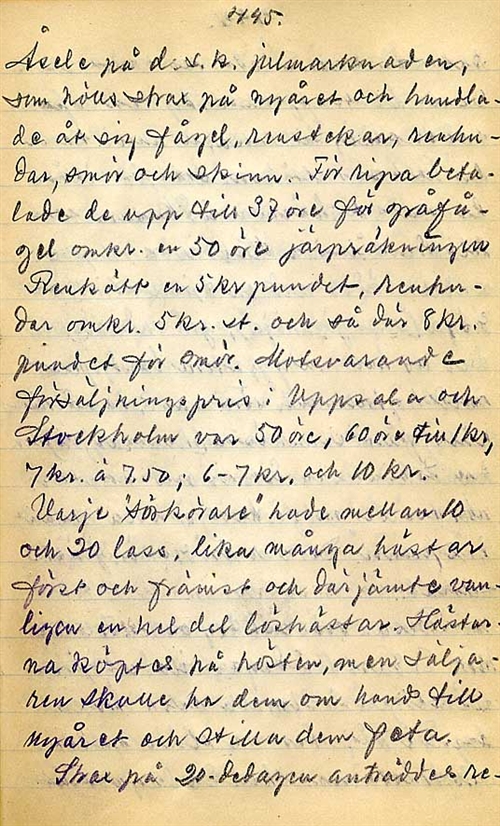 445.
Åsele på d. s.k. julmarknaden,
som hölls strax på nyåret och handla-
de åt sig fågel, renstekar, renhu-
dar, smör och skinn. För ripa beta-
lade de upp till 37 öre för gråfå-
gel omkr. en 50 öre järpräkningen
Renkött en 5 kr pundet, renhu-
dar omkr. 5 kr. st. och så där 8 kr.
pundet för smör. Motsvarande
försäljningspris i Uppsala och
Stockholm var 50 öre, 60 öre till 1 kr,
7 kr. à 7.50; 6-7 kr. och 10 kr.
Varje "sörkörare" hade mellan 10
och 20 lass, lika många hästar
först och främst och därjämte van-
ligen en hel del löshästar. Hästar-
na köptes på hösten, men sälja-
ren skulle ha dem om hand till
nyåret och ställa dem feta.
Strax på 20-dedagen anträddes re-